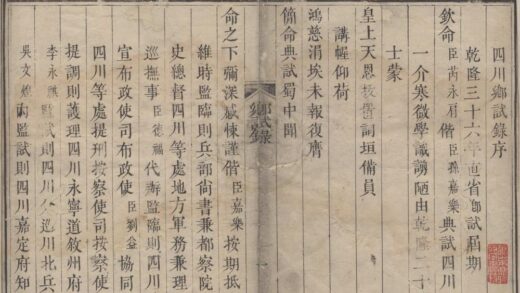 四川鄉試錄序
乾隆三十六年直省鄉試屆期
欽命臣芮永肩偕臣孫嘉樂典試四川
一介寒微學識謭陋由乾隆二十
士蒙
皇上天恩拔置詞垣備員
講幄仰荷
鴻慈涓埃未報復膺
簡命典試蜀中聞
鄉試錄
一
命之下彌深感悚謹偕臣嘉樂按期抵
維時監臨則兵部尚書兼都察院
史總督四川等處地方軍務兼理
巡撫事臣德福代辦監臨則四川
宣布政使司布政使臣劉益協同
四川等處提刑按察使司按察使
提調則護理四川永寧道敘州府
李永祺監試則四川分巡川北兵
吳文 內監試則四川嘉定府知